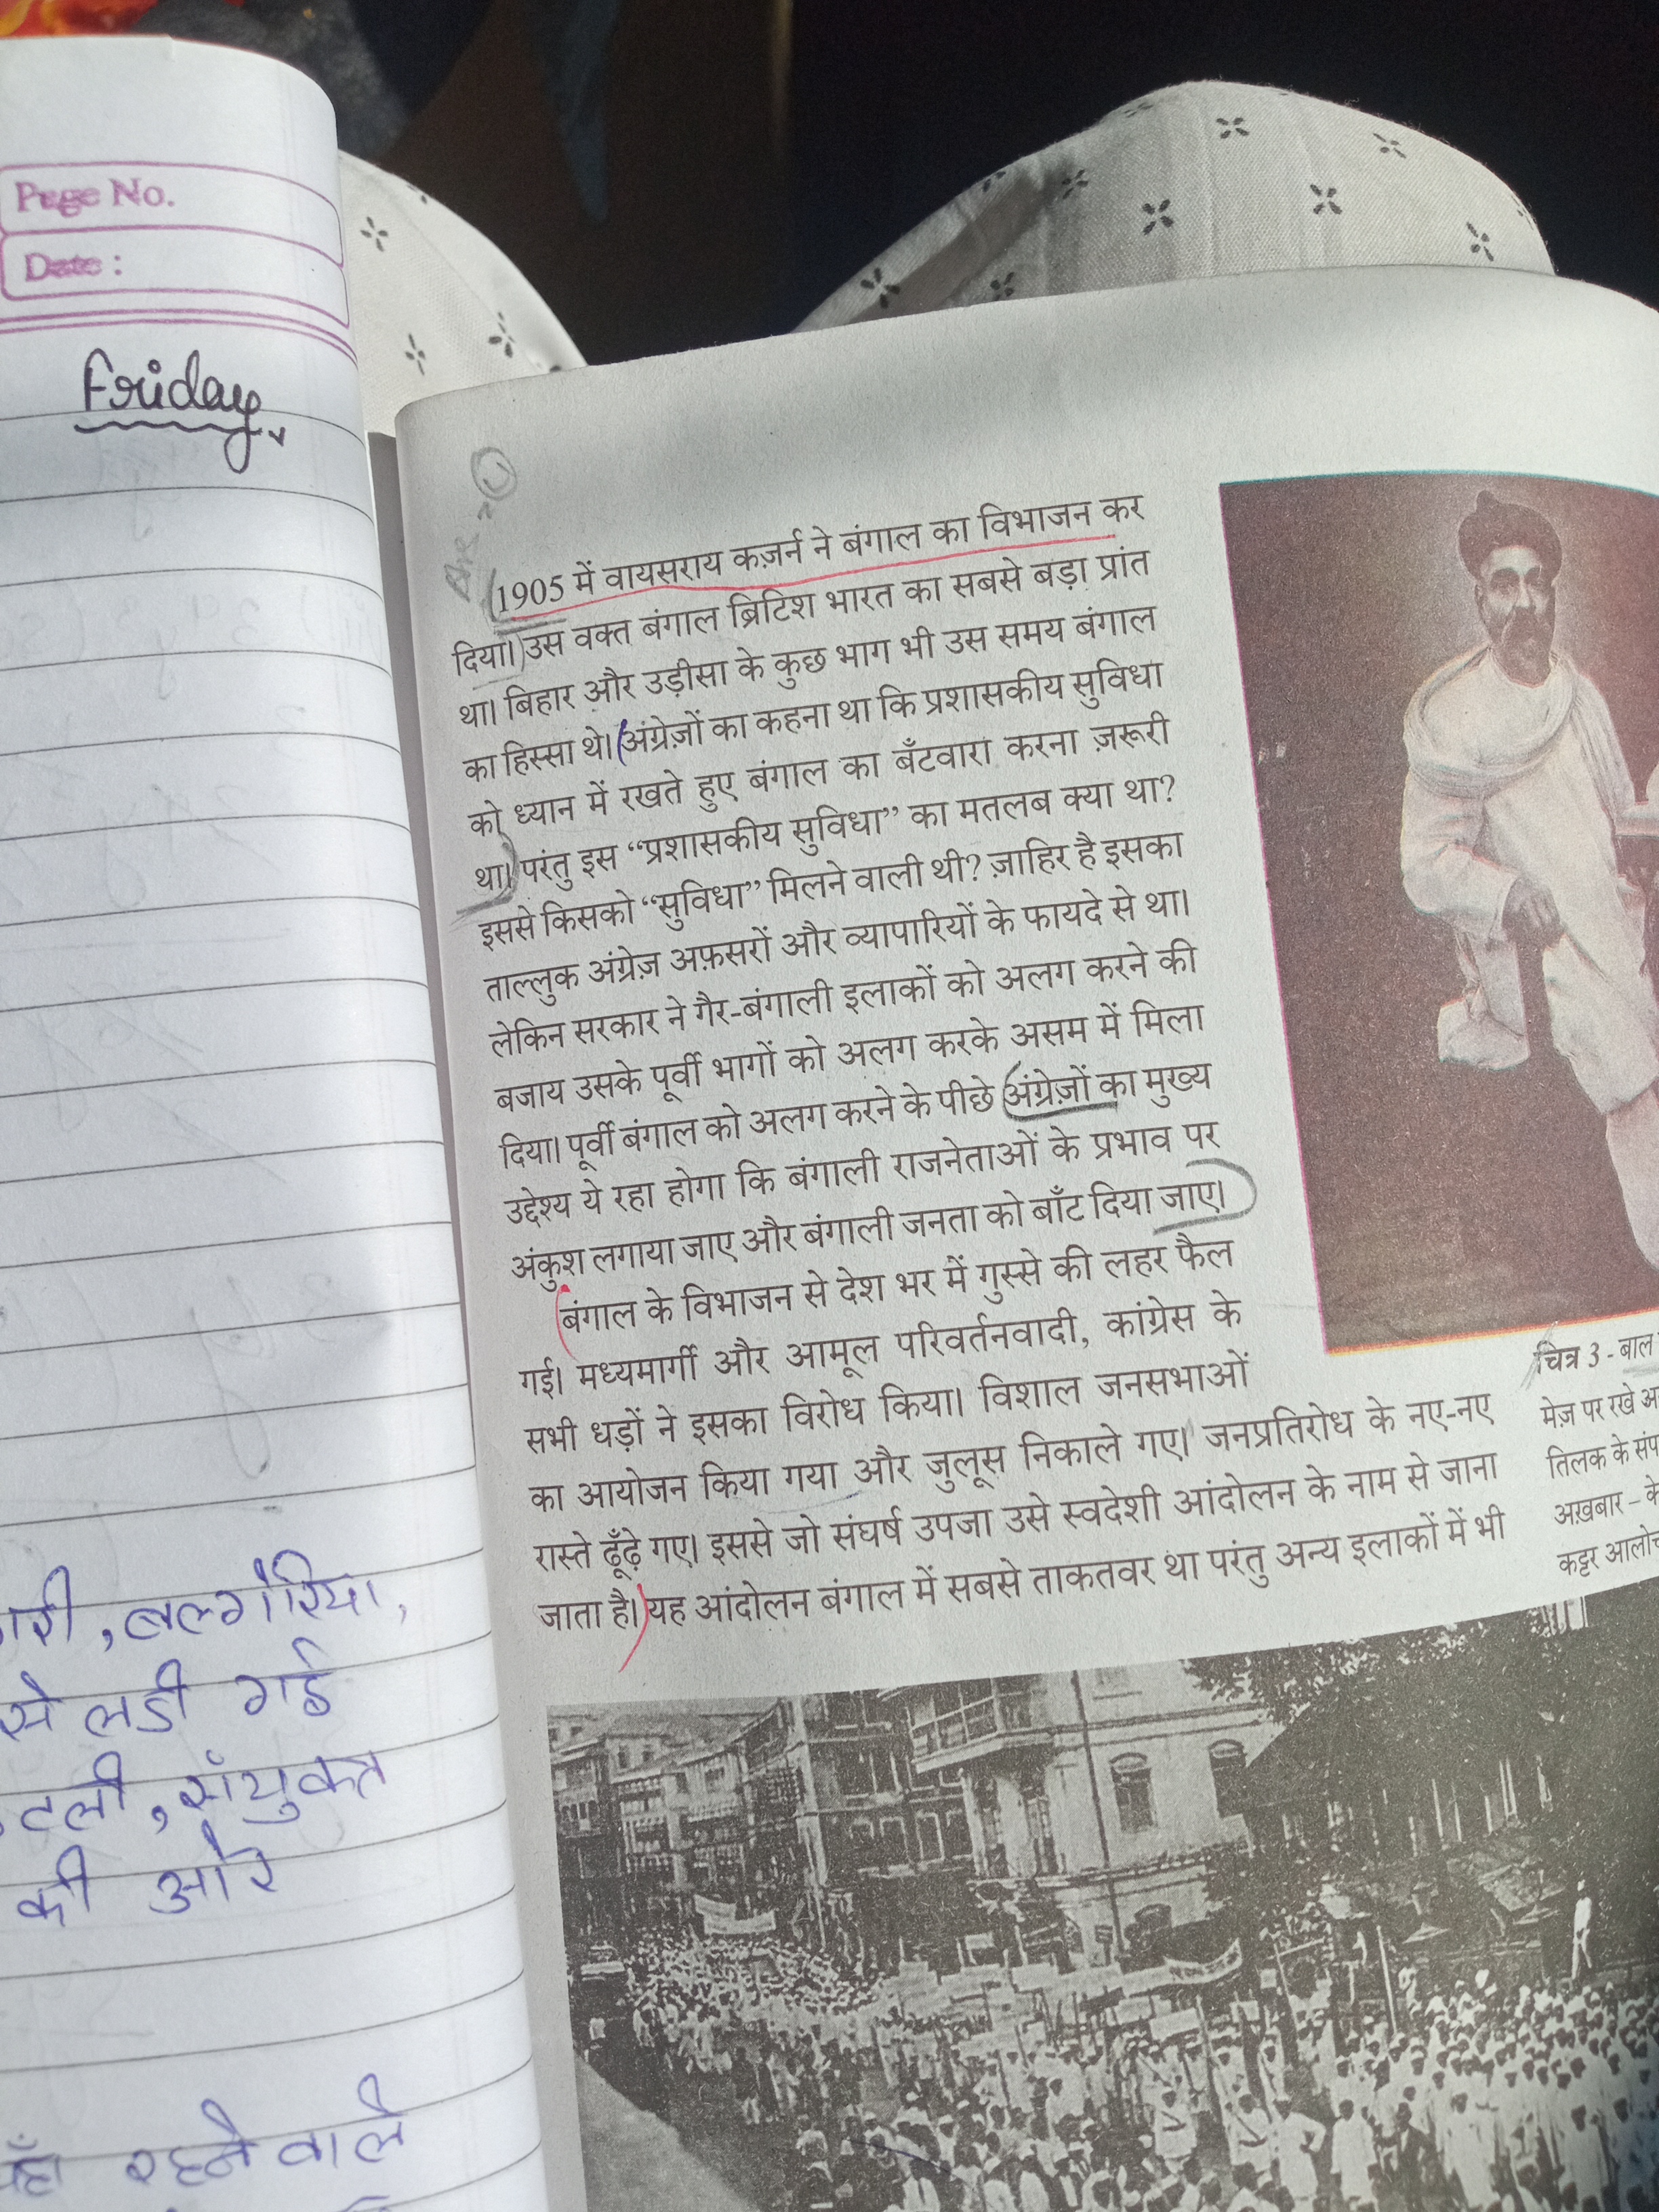 Page No.
Date :
Friday
बल्गेरिया,
से लडी गई
संयुक्त
की ओर
रहने वाले
1905 में वायसराय कज़र्न ने बंगाल का विभाजन कर
दिया। उस वक्त बंगाल ब्रिटिश भारत का सबसे बड़ा प्रांत
था। बिहार और उड़ीसा के कुछ भाग भी उस समय बंगाल
का हिस्सा थे। (अंग्रेज़ों का कहना था कि प्रशासकीय सुविधा
को ध्यान में रखते हुए बंगाल का बँटवारा करना ज़रूरी
था।) परंतु इस “प्रशासकीय सुविधा” का मतलब क्या था?
इससे किसको “सुविधा” मिलने वाली थी? ज़ाहिर है इसका
ताल्लुक अंग्रेज़ अफ़सरों और व्यापारियों के फायदे से था।
लेकिन सरकार ने गैर-बंगाली इलाकों को अलग करने की
बजाय उसके पूर्वी भागों को अलग करके असम में मिला
दिया। पूर्वी बंगाल को अलग करने के पीछे (अंग्रेज़ों का मुख्य
उद्देश्य ये रहा होगा कि बंगाली राजनेताओं के प्रभाव पर
अंकुश लगाया जाए और बंगाली जनता को बाँट दिया जाए।)
(बंगाल के विभाजन से देश भर में गुस्से की लहर फैल
गई। मध्यमार्गी और आमूल परिवर्तनवादी, कांग्रेस के
सभी धड़ों ने इसका विरोध किया। विशाल जनसभाओं
का आयोजन किया गया और जुलूस निकाले गए। जनप्रतिरोध के नए-नए
रास्ते ढूँढ़े गए। इससे जो संघर्ष उपजा उसे स्वदेशी आंदोलन के नाम से जाना
जाता है।) यह आंदोलन बंगाल में सबसे ताकतवर था परंतु अन्य इलाकों में भी
चित्र 3 - बाल
मेज़ पर रखे
तिलक के
अख़बार –
कट्टर